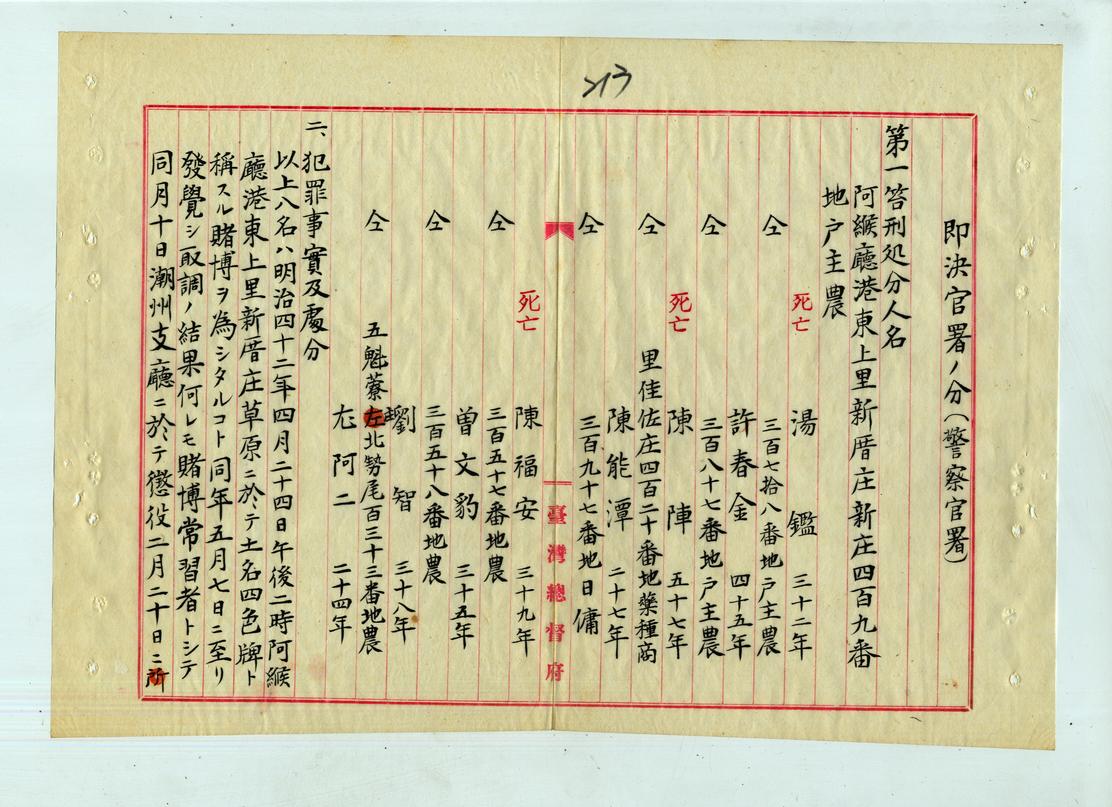 213
即決官署ノ分(警察官署)
第一笞刑処分人名
阿緱廳港東上里新厝庄新庄四百九番
地戸主農
死亡 湯鑑 三十二年
仝 三百七拾八番地戸主農
許春金 四十五年
仝 三百八十七番地戸主農
死亡 陳陣 五十七年
仝 里佳佐庄四百二十番地藥種商
陳能潭 二十七年
仝 三百九十七番地日傭
臺灣總督府
死亡 陳福安 三十九年
仝 三百五十七番地農
曽文豹 三十五年
仝 三百五十八番地農
劉智 三十八年
仝 五魁藔左北勢尾百三十三番地農
尫阿二 二十四年
二、犯罪事實及處分
以上八名ハ明治四十二年四月二十四日午後二時阿緱
廳港東上里新厝庄草原ニ於テ土名四色牌ト
稱スル賭博ヲ為シタルコト同年五月七日ニ至リ
發覺シ取調ノ結果何レモ賭博常習者トシテ
同月十日潮州支廳ニ於テ懲役二月二十日ニ所